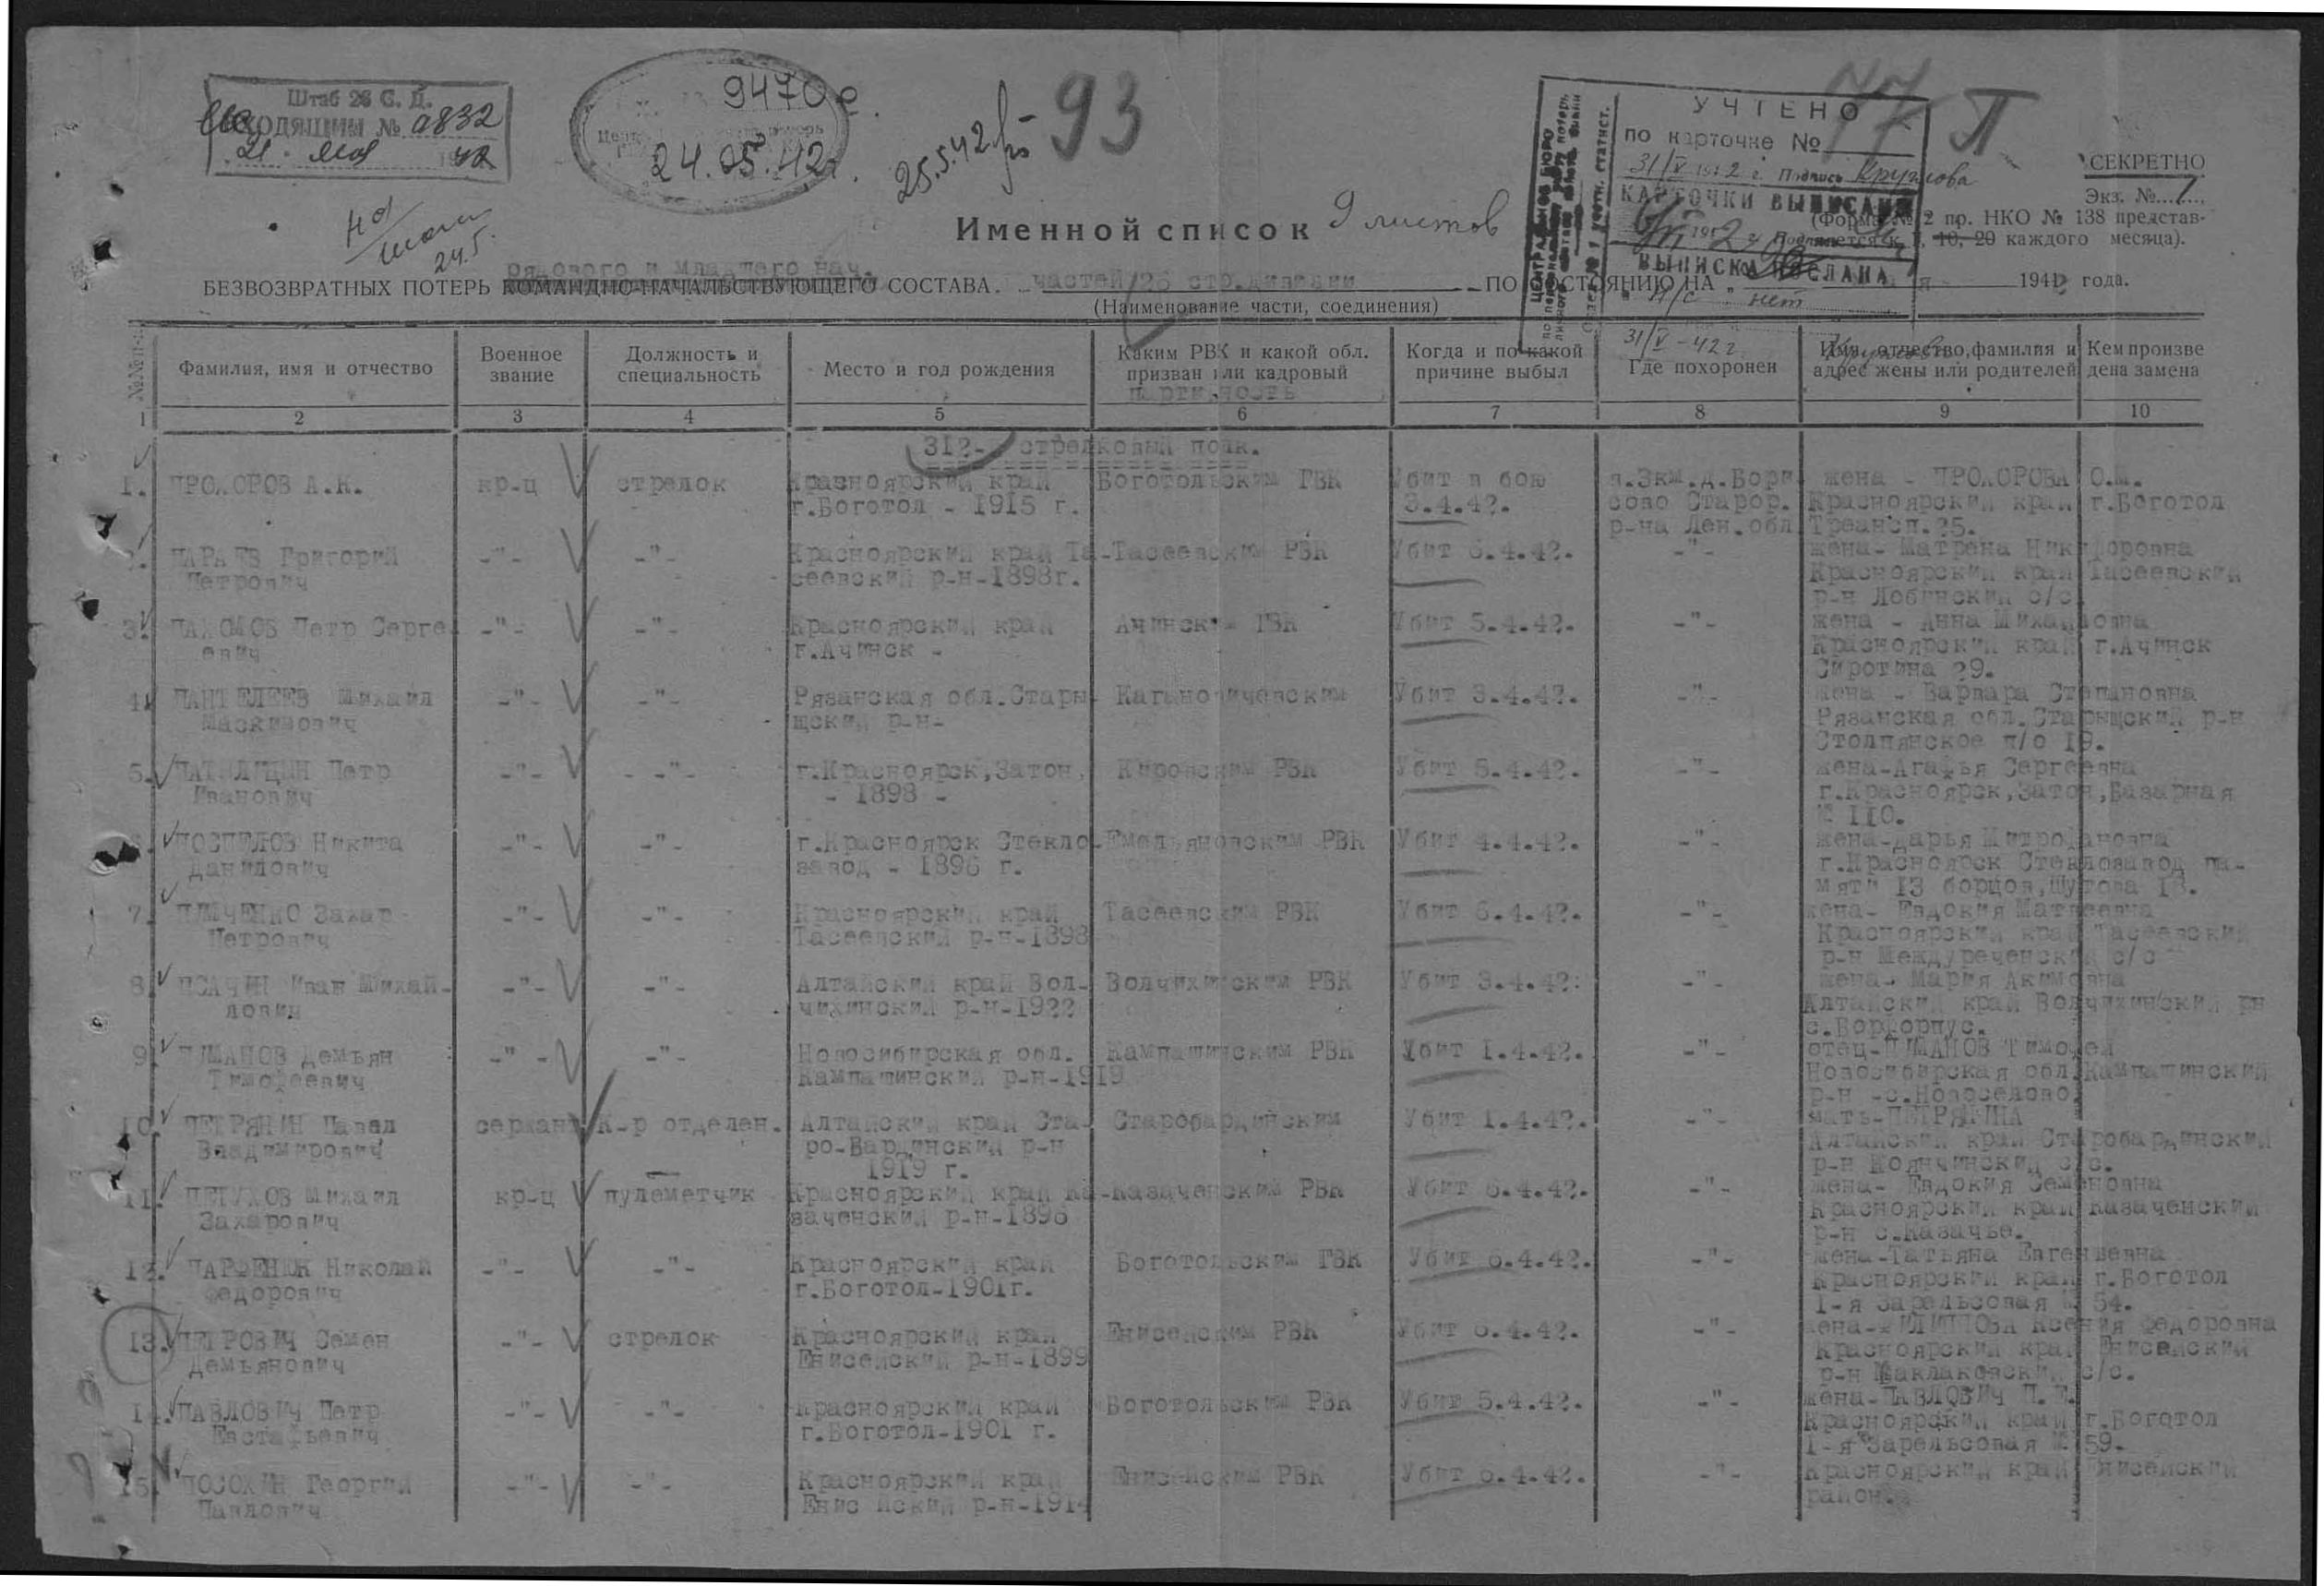 Штаб 26 С. Д.
ХОДЯЩИМ № 0832
21 мая 1942
9470с
24.05.42г.
25.5.42
93
77
П
УЧТЕНО
по карточке №
31/V 1942 г. Подпись Круглова
КАРТОЧКИ ВЫПИСАНЫ
ВЫПИСКА ПОСЛАНА
л/с нет
31/V-42 г
ЦЕНТРАЛЬНОЕ БЮРО
СЕКРЕТНО
Экз. № 1
(Форма № 2 пр. НКО № 138 представ-
ляется к 1, 10, 20 каждого месяца).
Именной список 9 листов
рядового и младшего нач.
БЕЗВОЗВРАТНЫХ ПОТЕРЬ КОМАНДНО-НАЧАЛЬСТВУЮЩЕГО СОСТАВА. частей 26 стр.дивизии ПО СОСТОЯНИЮ НА 1942 года.
(Наименование части, соединения)
Фамилия, имя и отчество
Военное звание
Должность и специальность
Место и год рождения
Каким РВК и какой обл. призван или кадровый
партийность
Когда и по какой причине выбыл
Где похоронен
Имя, отчество, фамилия и адрес жены или родителей
Кем произведена замена
1 2 3 4 5 6 7 8 9 10
312- стрелковый полк.
1. ПРОХОРОВ А.К. кр-ц стрелок Красноярский край Боготольским ГВК Убит в бою в.3км.д.Бори жена - ПРОХОРОВА О.М.
г.Боготол - 1915 г. 3.4.42. сово Старор. Красноярский край г.Боготол
р-на Лен.обл Трансп.25.
2. ПАРАЕВ Григорий -"- -"- Красноярский край Та -Тасеевским РВК Убит 6.4.42. -"- жена- Матрена Никифоровна
Петрович сеевский р-н-1898г. Красноярский край Тасеевский
р-н Лобинский с/с
3. ПАХОМОВ Петр Серге -"- -"- Красноярский край Ачинским ГВК Убит 5.4.42. -"- жена - Анна Михайловна
евич г.Ачинск - Красноярский край г.Ачинск
Сиротина 29.
4. ПАНТЕЛЕЕВ Михаил -"- -"- Рязанская обл.Стары- Кагановичевским Убит 3.4.42. -"- жена - Варвара Степановна
Маскимович щский р-н- Рязанская обл.Старыщский р-н
Столпянское п/о 19.
5. Петр -"- -"- г.Красноярск,Затон, Кировским РВК Убит 5.4.42. -"- жена-Агафья Сергеевна
Иванович - 1898 - г.Красноярск,Затон,Базарная
№ 110.
6. ПОСПЕЛОВ Никита -"- -"- г.Красноярск Стекло-Емельяновским РВК Убит 4.4.42. -"- жена-Дарья Митрофановна
Данилович завод - 1896 г. г.Красноярск Стеклозавод па-
мяти 13 борцов,Шутова 18.
7. Захар -"- -"- Красноярский край Тасеевским РВК Убит 6.4.42. -"- жена- Евдокия Матвеевна
Петрович Тасеевский р-н-1898 Красноярский край Тасеевский
р-н Междуреченский с/с
8. ПСАЧИН Иван Михай- -"- -"- Алтайский край Вол- Волчихинским РВК Убит 3.4.42. -"- жена- Мария Акимовна
лович чихинский р-н-1922 Алтайский край Волчихинский рн
с.Борфорпус.
9. ПШАНОВ Демьян -"- -"- Новосибирская обл. Кампашинским РВК Убит 1.4.42. -"- отец-ПШАНОВ Тимофей
Тимофеевич Кампашинский р-н-1919 Новосибирская обл.Кампашинский
р-н -с.Новоселово.
10. ПЕТРЯНИН Павел сержант К-р отделен. Алтайский край Ста- Старобардинским Убит 1.4.42. -"- мать-ПЕТРЯНИНА
Владимирович ро-Бардинский р-н Алтайский край Старобардинский
1919 г. р-н с/с.
11. ПЕТУХОВ Михаил кр-ц пулеметчик Красноярский край Ка-Казаченским РВК Убит 6.4.42. -"- жена- Евдокия Семеновна
Захарович заченский р-н-1896 Красноярский край Казаченский
р-н с.Казачье.
12. ПАРФЕНЮК Николай -"- -"- Красноярский край Боготольским ГВК Убит 6.4.42. -"- жена-Татьяна Евгеньевна
Федорович г.Боготол-1901г. Красноярский край г.Боготол
1-я Зарельсовая № 54.
13. ПЕТРОВИЧ Семен -"- стрелок Красноярский край Енисейским РВК Убит 6.4.42. -"- жена-ФИЛИППОВА Ксения Федоровна
Демьянович Енисейский р-н-1899 Красноярский край Енисейский
р-н Маклаковский с/с.
14. ПАВЛОВИЧ Петр -"- -"- Красноярский край Боготольским РВК Убит 5.4.42. -"- жена-ПАВЛОВИЧ П.Е.
Евстафьевич г.Боготол-1901 г. Красноярский край г.Боготол
1-я Зарельсовая № 59.
15. ПОСОХИН Георгий -"- -"- Красноярский край Енисейским РВК Убит 6.4.42. -"- Красноярский край Енисейский
Павлович Енис йский р-н-1914 район.